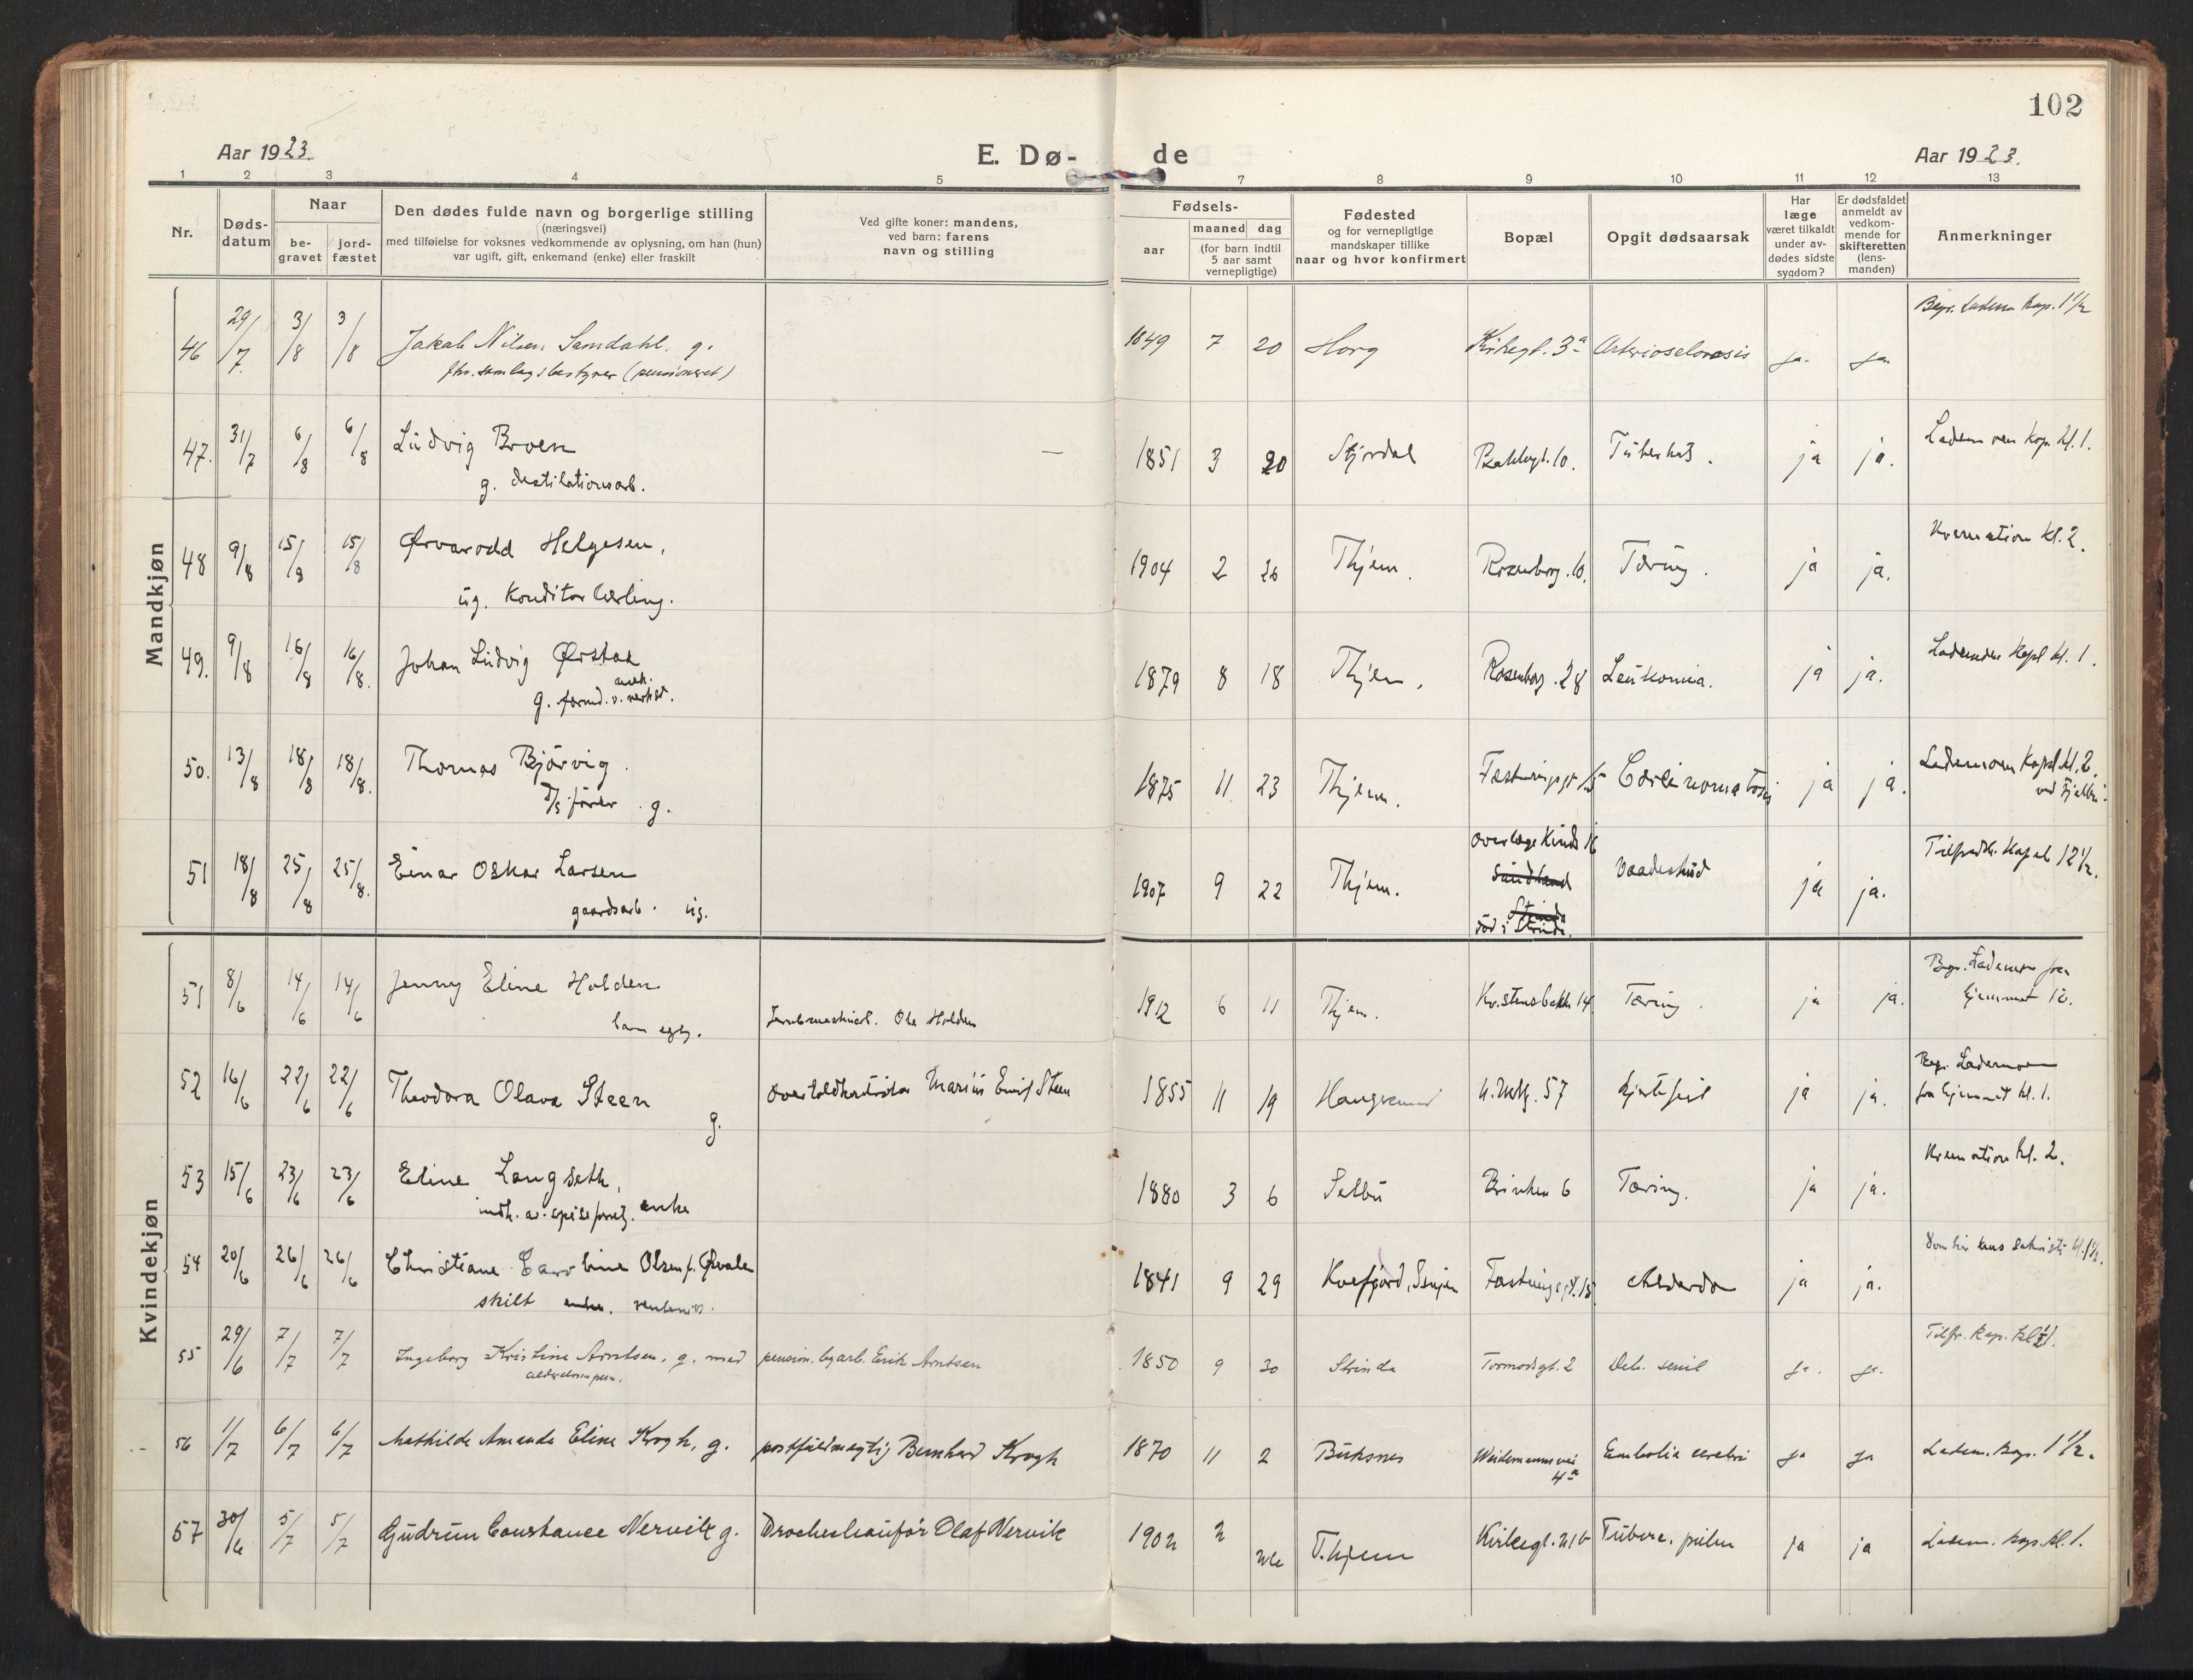 102
Aar 1923.
E. Dø-
de
Aar 1923.
1 2 3 4 5 7 8 9 10 11 12 13
Nr.
Døds-
datum
Naar
be-
gravet
jord-
fæstet
Den dødes fulde navn og borgerlige stilling
(næringsvei)
med tilføielse for voksnes vedkommende av oplysning, om han (hun)
var ugift, gift, enkemand (enke) eller fraskilt
Ved gifte koner: mandens,
ved barn: farens
navn og stilling
Fødsels-
aar
maaned dag
(for barn indtil
5 aar samt
vernepligtige)
Fødested
og for vernepligtige
mandskaper tillike
naar og hvor konfirmert
Bopæl
Opgit dødsaarsak
Har
læge
været tilkaldt
under av-
dødes sidste
sygdom?
Er dødsfaldet
anmeldt av
vedkom-
mende for
skifteretten
(lens-
manden)
Anmerkninger
Mandkjøn
46 29/7 3/8 3/8 Jakob Nilsen Samdahl. g. 1849 7 20 Horg Kirkegt. 3a Arteriosclorosis ja. ja Begr. Ladem kap. 1 1/2
fhv. samlagsbestyrer (pensioneret)
47. 31/7 6/8 6/8 Ludvig Broen — 1851 3 20 Stjørdal Bakkegt. 10. Tuberkul. ja ja. Lademoen kap. kl. 1.
g. destilationsarb.
48 9/8 15/8 15/8 Ørvarodd Helgesen, 1904 2 26 Thjem. Rosenborg. 10. Tæring. ja ja. Kremation kl. 2.
ug. Konditorlærling.
49. 9/8 16/8 16/8. Johan Ludvig Ørstad 1879 8 18 Thjem. Rosenborg. 28 Leukomia. ja ja. Lademoen kapel kl. 1.
g. formd. v. mek. verkst.
50. 13/8 18/8 18/8. Thomas Bjørvig. 1875 11 23 Thjem. Fæstningsgt 15 Carcinomatosis ja ja. Lademoen Kapel kl. 2.
D/S fører. g.
51 18/8 25/8 25/8. Einar Oskar Larsen 1907 9 22 Thjem. Overlæge Kinds 16 Vaadeskud ja ja. Tilfredsh. Kapel 12 1/2.
gaardsarb. ug. død i Strinda.
Kvindekjøn
51 8/6 14/6 14/6 Jenny Eline Holden 1912 6 11 Thjem. Kristensbakk 14 Tæring. ja ja. Begr. Lademoen fra
barn egtf. Ole Holden hjemmet 12.
52 16/6 22/6 22/6 Theodora Olava Steen g. Overtoldkontrolør Marius Emil Steen 1855 11 19 Haugesund 57 hjertefeil ja ja. Begr. Lademoen
fra hjemmet kl. 1.
53 15/6 23/6 23/6 Eline Langseth, 1880 3 6 Selbu Brinken 6 Tæring. ja ja. Kremation kl. 2.
indh. av spiseforretn. enke
54 20/6 26/6 26/6 Christiane Caroline Olsen f. Qvale 1841 9 29 Kvefjord, Senjen Fæstningsgt. 15 Alderdom ja ja.
skilt
55 29/6 7/7 7/7 Ingeborg Kristine Arntsen, g. med pension. byarb. Erik Arntsen 1850 9 30 Strinda Tormodsgt. 2 Deb. senil ja. ja. Tilfr. kap. kl. 1.
56 1/7 6/7 6/7 Mathilde Amanda Eline Krogh, g. postfuldmegtig Bernhard Krogh 1870 11 2 Buksnes Weidemannsvei 4a Embolia cerebri ja ja Ladem. kap. 1 1/2.
57 30/6 5/7 5/7 Gudrun Constance Nervik g. Droschechauför Olaf Nervik 1902 2 26 T.hjem Kirkegt. 21b Tuberc. pulm ja ja Ladem. kap. kl. 1.